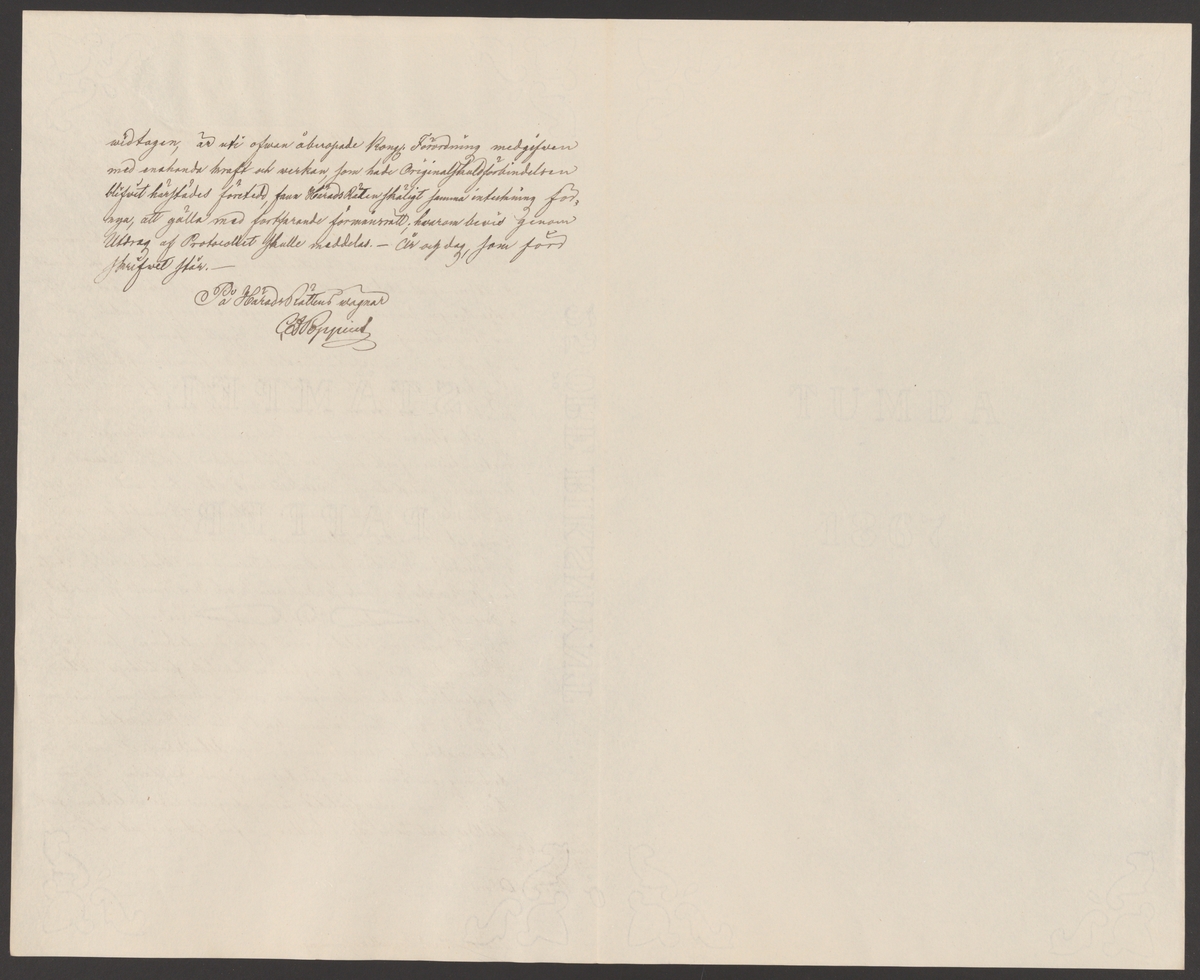 widtagen, är uti ofwan åberopade Kongl. Förordning medgifwen
med enahanda kraft och verkan, som hade Originalskuldförbindelsen
blifvit härstädes företedd, fann HäradsRätten skäligt samma inteckning för-
nya, att gälla med fortfarande förmånsrätt, hvarom bevis genom
Utdrag af Protocollet skulle meddelas. — År och dag, som förr
skrifvit står. —
På HäradsRättens wägnar